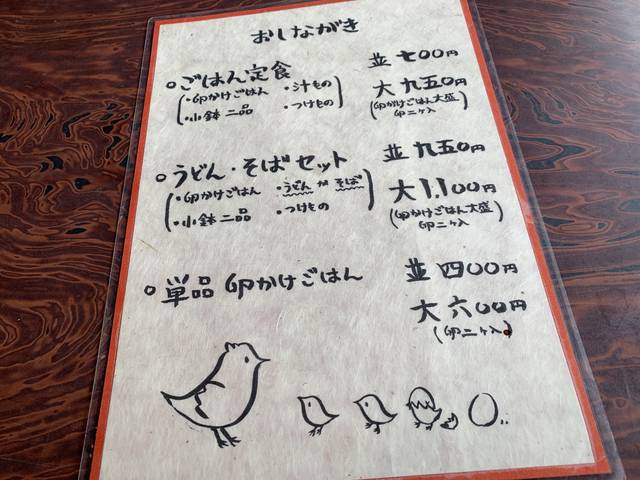 おしながき
○ごはん定食 並 七〇〇円
(・卵かけごはん ・汁もの 大 九五〇円
・小鉢二品 ・つけもの) (卵がけごはん大盛
卵二ヶ入)
○うどん・そばセット 並 九五〇円
(・卵かけごはん ・うどんかそば 大 1,100円
・小鉢二品 ・つけもの) (卵がけごはん大盛
卵二ヶ入)
○単品 卵かけごはん 並 四〇〇円
大 六〇〇円
(卵二ヶ入)